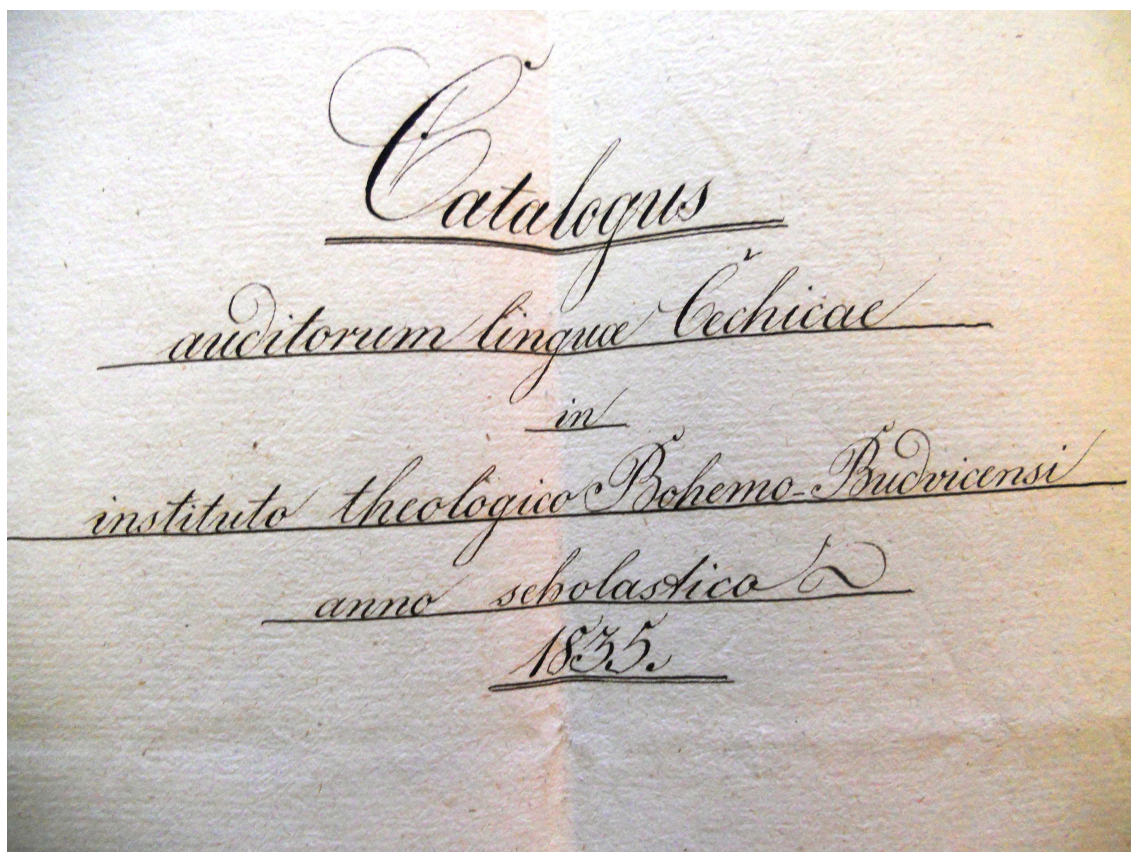 Catalogus
auditorum linguæ Čechicae
in
instituto theologico Bohemo-Budvicensi
anno scholastico
1835.